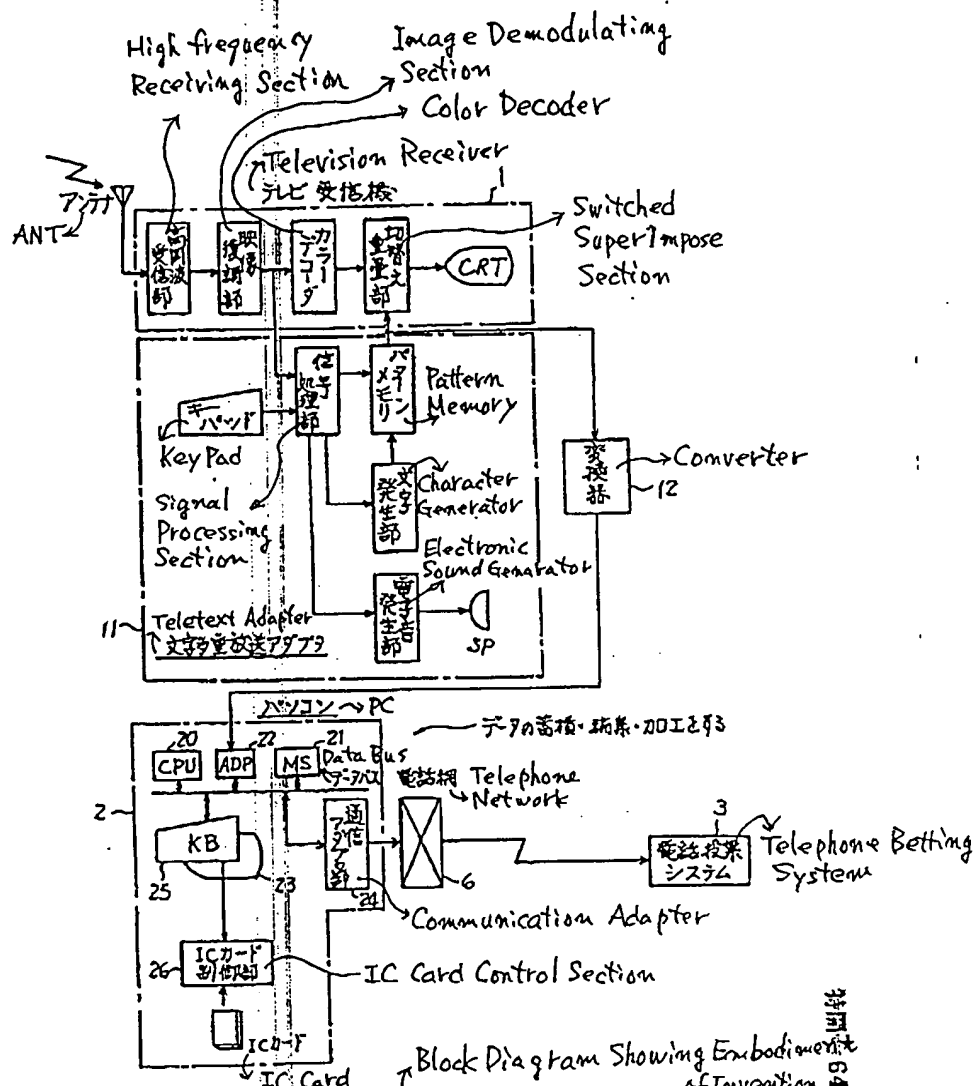 High frequency
Receiving Section
Image Demodulating
Section
Color Decoder
Television Receiver
テレビ受信機
1
Switched
SuperImpose
Section
アンテナ
ANT
高周波
受信部
映像
復調部
カラー
デコーダ
切替え
重畳部
CRT
信号
処理部
パターン
メモリ
Pattern
Memory
キー
パッド
Key Pad
Signal
Processing
Section
文字
発生部
Character
Generator
変換器
Converter
12
Electronic
Sound Genarator
電子音
発生部
SP
11
Teletext Adapter
文字多重放送アダプタ
パソコン
PC
データの蓄積・編集・加工をする
20
22
21
CPU
ADP
MS
Data Bus
データバス
電話網
Telephone
Network
2
KB
25
23
通信
アダプタ部
24
6
3
電話投票
システム
Telephone Betting
System
Communication Adapter
26
ICカード
制御部
IC Card Control Section
ICカード
IC Card
Block Diagram Showing Embodiment
of Invention
特開 64